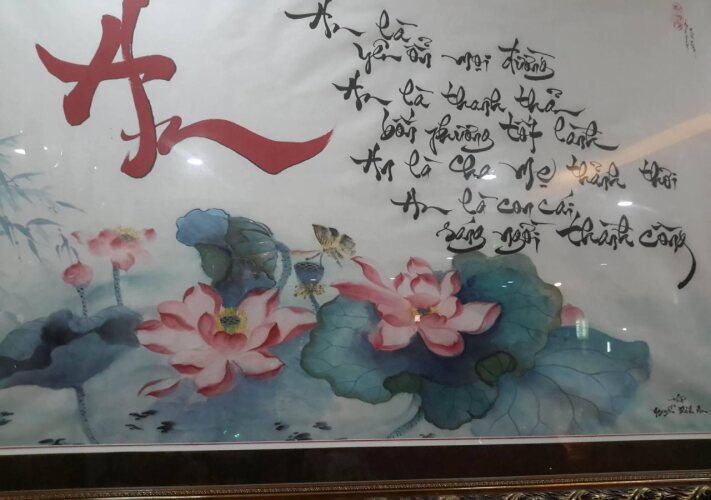 An
An là
yên ổn mọi đường
An là thanh thản
bốn phương tốt lành
An là cha mẹ thảnh thơi
An là con cái
rạng ngời thành công